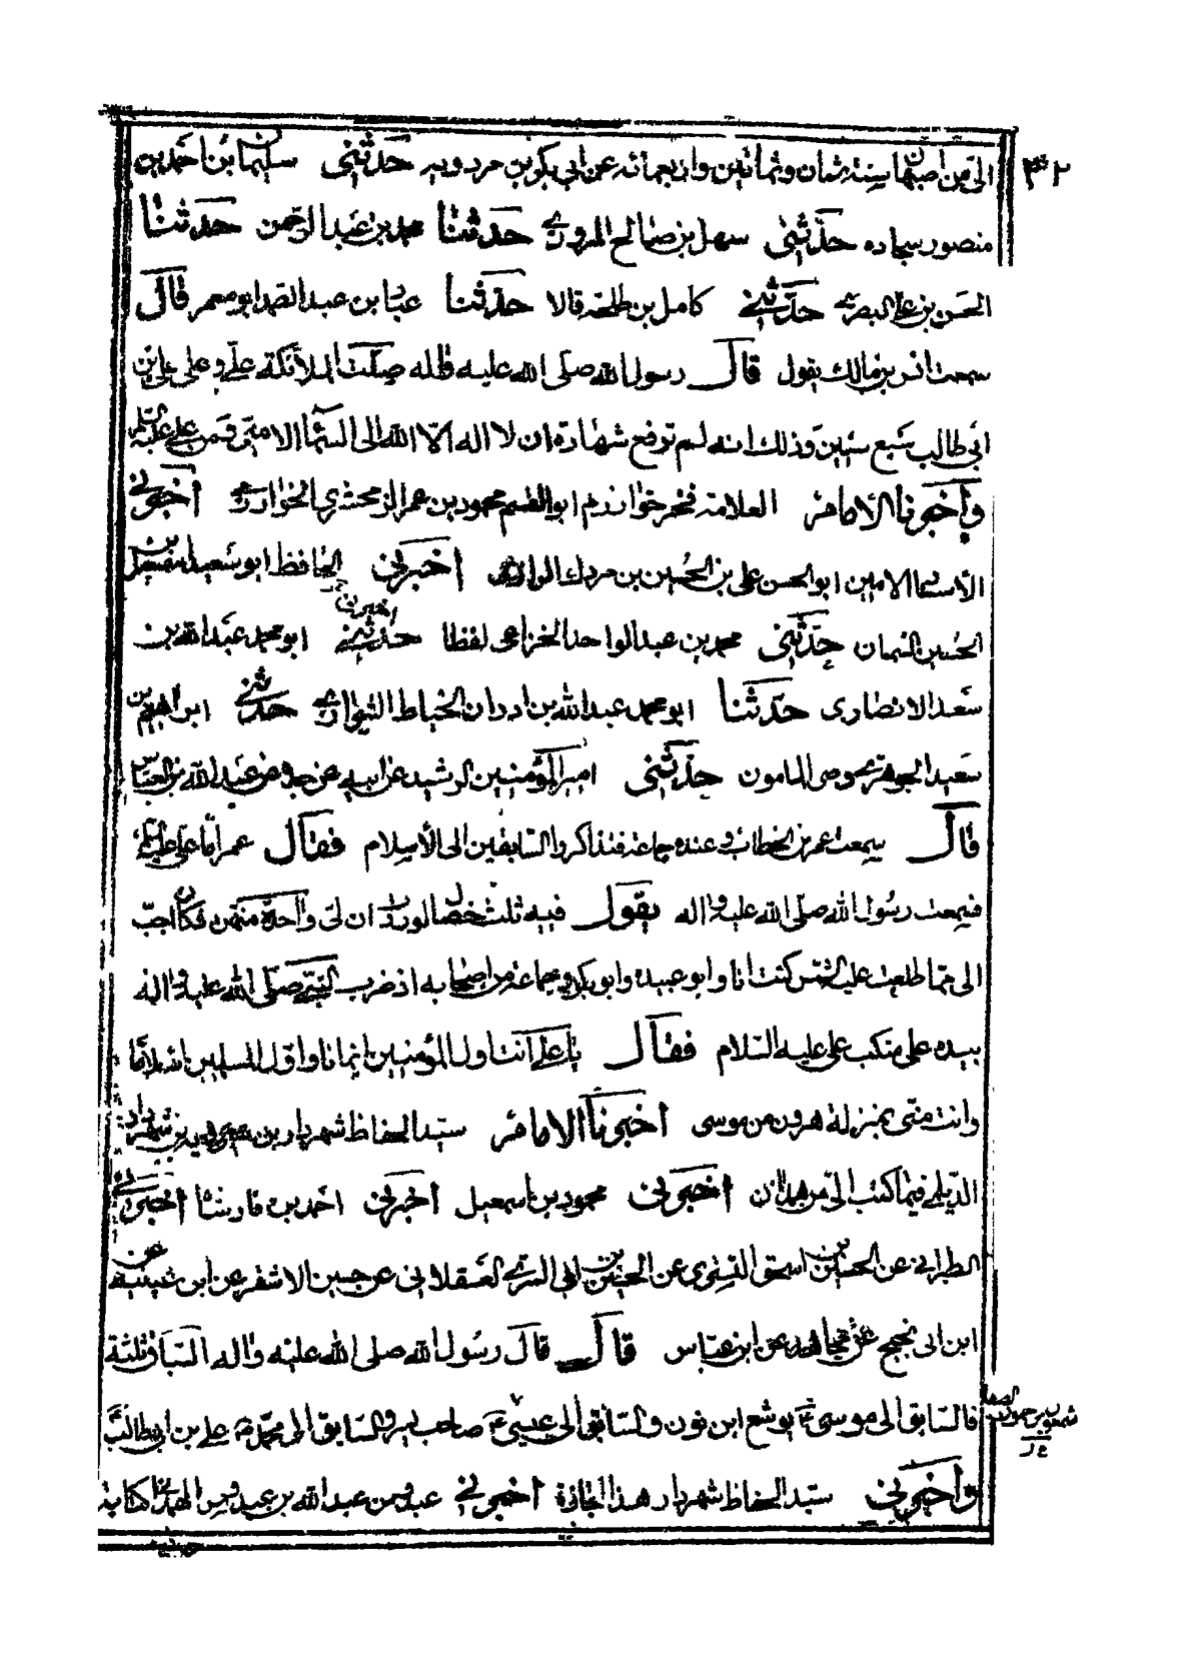 الى من اصبهان سنة ثمان وثمانين واربعمائه عن ابى بكر بن مردويه حدثنى سليمان بن احمد بن
منصور سجاده حدّثنى سهل بن صالح المروزى حدثنا محمد بن عبد الرحمن حدثنا
الحسن بن على البصرى حدّثنى كامل بن طلحة قالا حدثنا عباد بن عبد الصمد ابو معمر قال
سمعت انس بن مالك يقول قال رسول الله صلى الله عليه واله صلّت الملائكة علىّ وعلى على بن
ابى طالب سبع سنين وذلك انه لم ترفع شهادة ان لا اله الا الله الى السماء الا منّى ومن على عليه السلم
واخبرنا الامام العلامة فخر خوارزم ابو القسم محمود بن عمر الزمخشرى الخوارزمى اخبرنى
الامين ابو الحسن على بن الحسين بن مردك الرازى اخبرنى الحافظ ابو سعيد اسمعيل بن
الحسين السمان حدّثنى محمد بن عبد الواحد الخزاعى لفظا اخبرنى حدثنى ابو محمد عبد الله بن
سعد الانصارى حدّثنا ابو محمد عبد الله بن ادران الخياط الشيرازى حدثنى ابراهيم بن
سعيد الجوهرى وصى المامون حدّثنى امير المؤمنين الرشيد عن ابيه عن جده عن عبد الله بن العباس
قال سمعت عمر بن الخطاب وعنده جماعة فتذاكروا السابقين الى الاسلام فقال عمر اما على عليه السلم
فسمعت رسول الله صلى الله عليه واله يقول فيه ثلث خصال لوددت ان لى واحدة منهن فكان احبّ
الى مما طلعت عليه الشمس كنت انا وابو عبيده وابو بكر وجماعة من اصحابه اذ ضرب النبى صلى الله عليه واله
بيده على منكب على عليه السلام فقال يا على انت اول المؤمنين ايمانا واول المسلمين اسلاما
وانت منى بمنزلة هرون من موسى اخبرنا الامام سيد الحفاظ شهردار بن شيرويه بن شهردار
الديلمى فيما كتب الىّ من همدان اخبرنى محمود بن اسمعيل اخبرنى احمد بن فارشا اخبرنى
الطبرانى عن الحسين بن اسحق التسترى عن الحسين بن ابى السرى العسقلانى عن حسين الاشقر عن ابن عيينة عن
ابن ابى نجيح عن مجاهد عن ابن عباس قال قال رسول الله صلى الله عليه واله السباق ثلثة
فالسابق الى موسى ع يوشع ابن نون والسابق الى عيسى ع صاحب يس والسابق الى محمد ص على بن ابى طالب ع
واخبرنى سيد الحفاظ شهردار هذا اجازة اخبرنى عبدوس بن عبد الله بن عبدوس الهمدانى كتابة